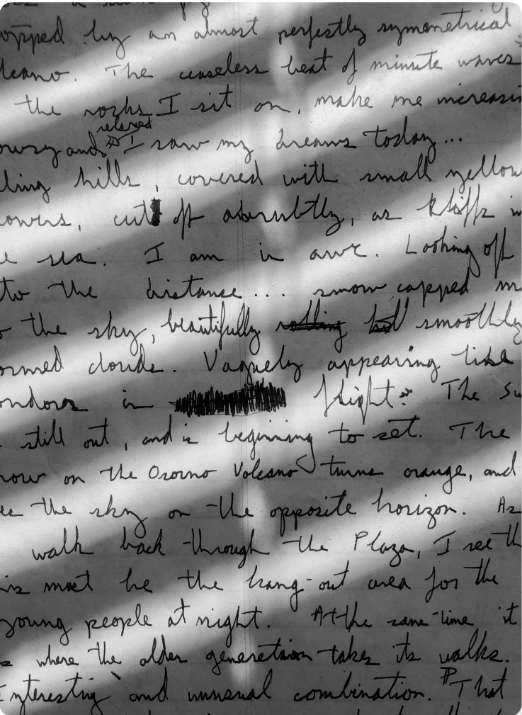 opped by an almost perfectly symmetrical
lcano. The ceaseless beat of minute waves
the rocks I sit on, make me increasi
relaxed
owsy and I saw my dreams today...
lling hills, covered with small yellow
owers, cut off abrubtly, as kliffs in
e sea. I am in awe. Looking off
to the distance... snow capped m
o the sky, beautifully rolling smoothly
ormed clouds. Vaguely appearing like
ondors in flight. The Su
still out, and is beginning to set. The
now on the Osorno Volcano turns orange, and
ee the sky on the opposite horizon. As
walk back through the Plaza, I see th
is must be the hang-out area for the
young people at night. At the same-time it
s where the older generation takes its walks.
Interesting and unusual combination. That